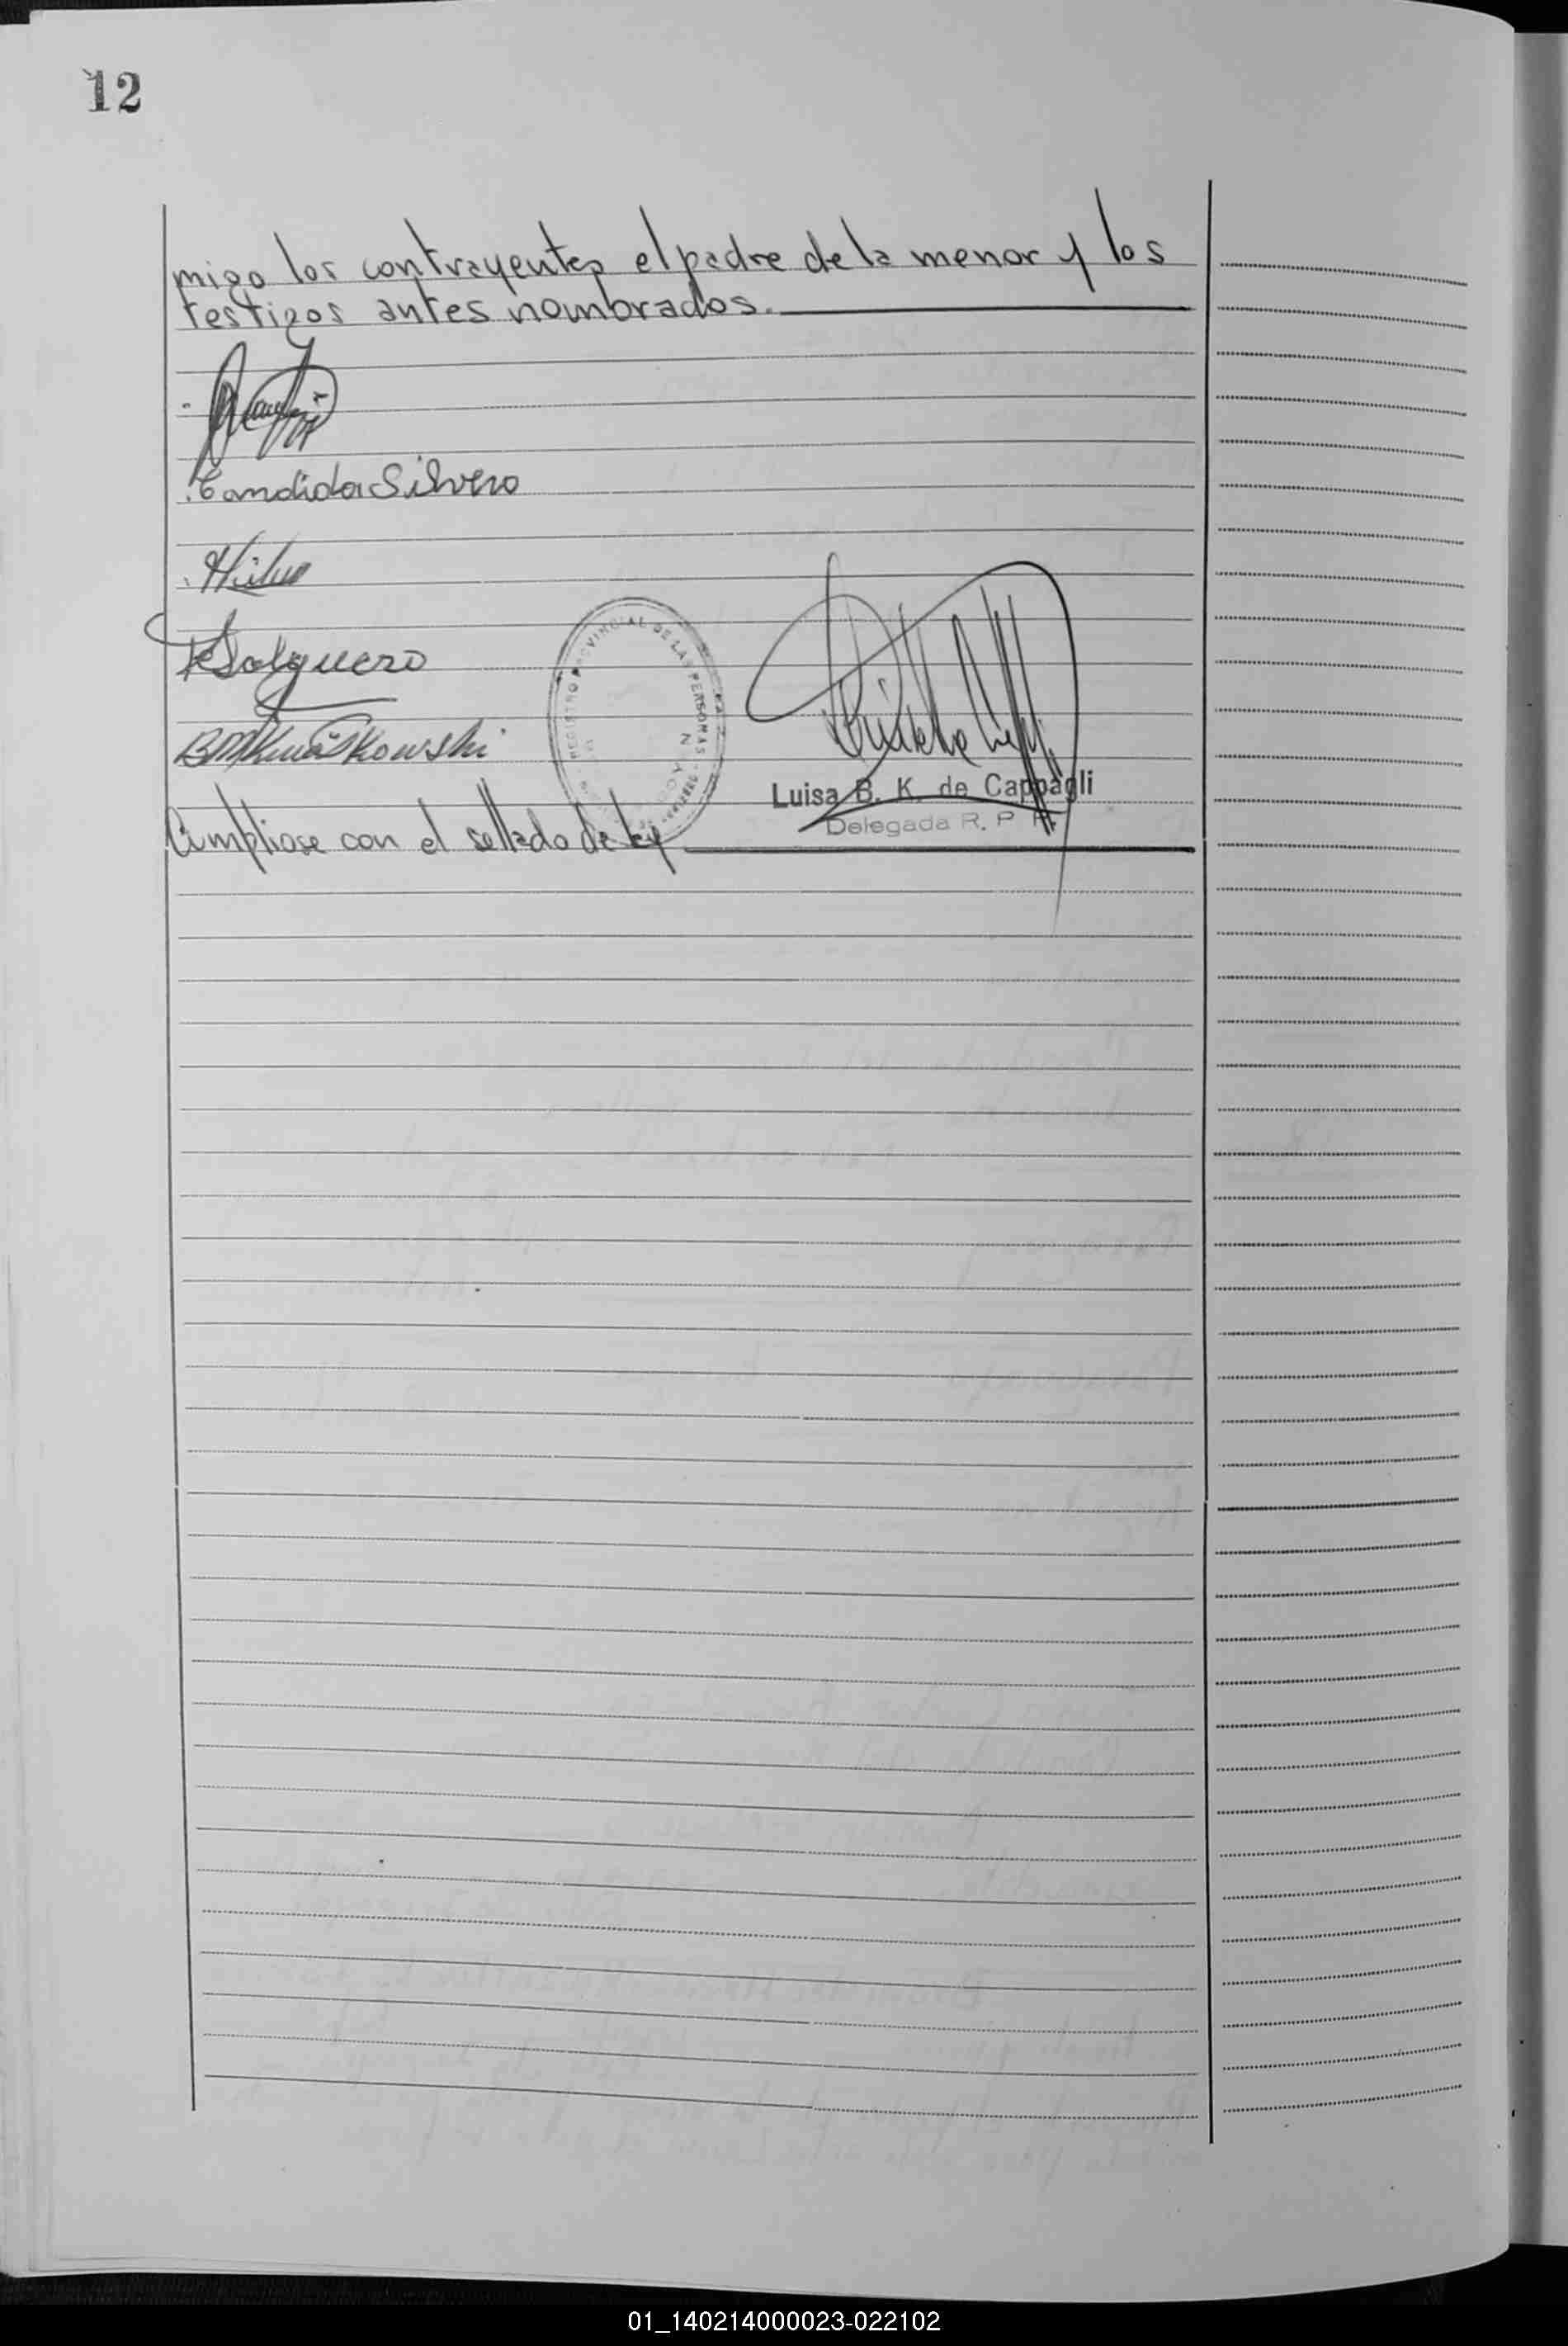 12
migo los contrayentes el padre de la menor y los
testigos antes nombrados.
Candida Silvero
Salguero
REGISTRO PROVINCIAL DE LAS PERSONAS
Luisa B. K. de Cappagli
Delegada R. P. P.
Cumpliose con el sellado de ley
01_140214000023-022102